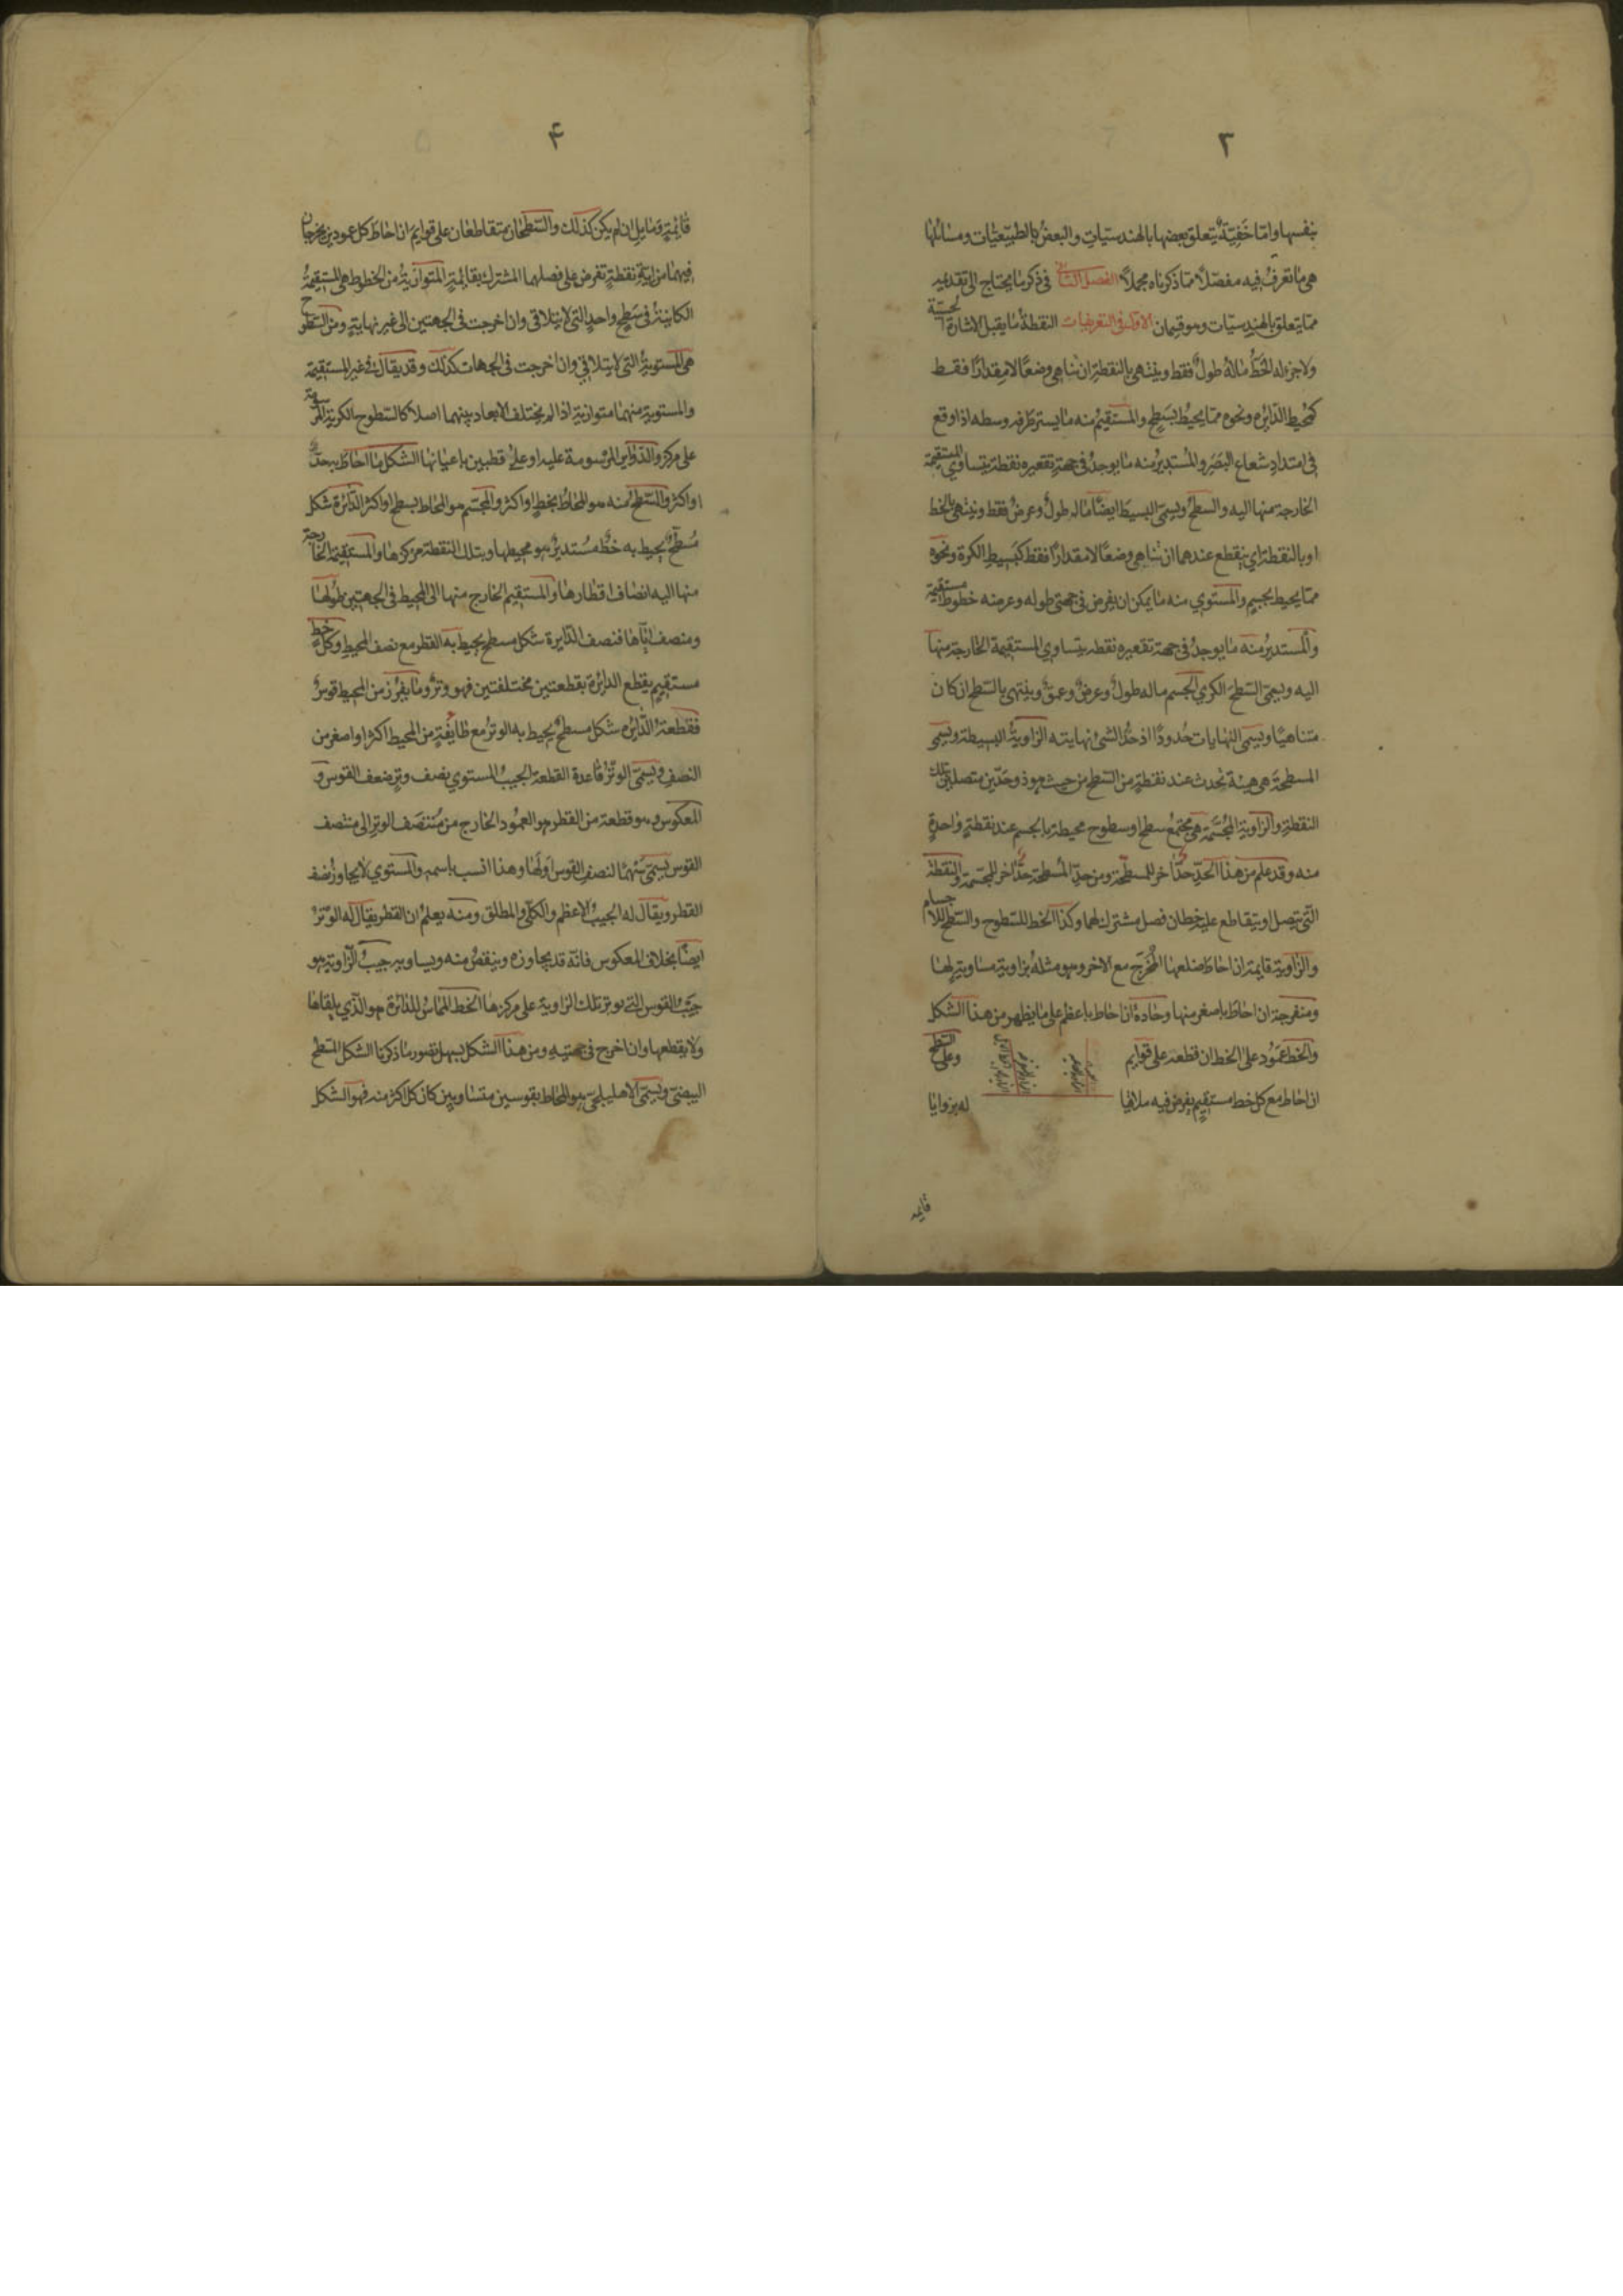 ٣
بنفسها واما خفيّة يتعلق بعضها بالهندسيّات والبعض بالطبيعيّات ومسائلها
هي ما تعرف فيه مفصّلاً مما ذكرناه مجملاً الفصل الثاني في ذكر ما يحتاج الى تقديمه
مما يتعلق بالهندسيّات وهو قسمان الاول في التعريفات النقطة ما يقبل الاشارة الحسيّة
ولا جزء له الخط ما له طولٌ فقط وينتهي بالنقطة ان تناهي وضعًا لا مقدارًا فقط
كمحيط الدائره ونحوه مما يحيط بسطح والمستقيم منه ما يستر طرفه وسطه اذا وقع
في امتداد شعاع البصر والمستدير منه ما يوجد في جهة تقعيره نقطة يتساوي المستقيمة
الخارجة منها اليه والسطح ويسمى البسيط ايضًا ما له طولٌ وعرضٌ فقط وينتهي بالخط
او بالنقطة اي ينقطع عندهما ان تناهي وضعًا لا مقدارًا فقط كبسيط الكرة ونحوه
مما يحيط بجسم والمستوي منه ما يمكن ان يفرض في جهتي طوله وعرضه خطوط مستقيمة
والمستدير منه ما يوجد في جهة تقعيره نقطه يتساوي المستقيمة الخارجة منها
اليه ويسمى السطح الكري الجسم ما له طولٌ وعرضٌ وعمقٌ وينتهي بالسطح ان كان
متناهيًا ويسمى النهايات حدودًا اذ حدّ الشئ نهايته الزاوية البسيطة ويسمى
المسطحة هي هيئة تحدث عند نقطة من السطح من حيث هو ذو حدّين متصلين تلك
النقطة والزاوية المجسّمة هي مجتمع سطح او سطوح محيطة بالجسم عند نقطةٍ واحدةٍ
منه وقد علم من هذا الحدّ حدًّا آخر للمسطحة ومن حدّ المسطحة حدًّا آخر للمجسّمة والنقطة
التي يتصل او يتقاطع عليها خطان فصل مشترك لهما وكذا الخط للسطوح والسطح للاجسام
والزاوية قايمة ان احاط ضلعها المخرج مع الاخر وهو مثله بزاوية مساوية لها
ومنفرجة ان احاط باصغر منها وحادة ان احاط باعظم على ما يظهر من هذا الشكل
والخط عمود على الخط ان قطعه على قوايم وعلى السطح
ان احاط مع كل خط مستقيم يفرض فيه ملاقيا له بزوايا
قايمه
۴
قائمةٍ ومايل ان لم يكن كذلك والسطحان متقاطعان على قوايم ان احاط كل عمودين يخرجان
فيهما من اية نقطةٍ تفرض على فصلهما المشترك بقائمةٍ المتوازية من الخطوط هي المستقيمة
الكاينة في سطحٍ واحدٍ التي لا يتلاقي وان اخرجت في الجهتين الى غير نهايةٍ ومن السطوح
هي المستوية التي لا يتلاقي وان اخرجت في الجهات كذلك وقد يقال في غير المستقيمة
والمستوية منهما متوازية اذا لم يختلف الابعاد بينهما اصلا كالسطوح الكرية المرسومة
على مركز والدواير المرسومة عليه او على قطبين باعيانها الشكل ما احاط به حدّ
او اكثر والسطح منه هو المحاط بخطٍ او اكثر والمجسّم هو المحاط بسطح او اكثر الدائرة شكل
مسطّحٌ يحيط به خطٌّ مستديرٌ هو محيطها وبتلك النقطة مركزها والمستقيمة الخارجة
منها اليه انصاف اقطارها والمستقيم الخارج منها الى المحيط في الجهتين قطرها
ومنصف اياها فنصف الدايرة شكل مسطح يحيط به القطر مع نصف المحيط وكل خط
مستقيمٍ يقطع الدائرة بقطعتين مختلفتين فهو وترٌ وما يفرز من المحيط قوسٌ
فقطعة الدائره شكل مسطحٌ يحيط به الوتر مع طائفةٍ من المحيط اكثر او اصغر من
النصف ويسمى الوتر قاعدة القطعة الجيب المستوي نصف وتر ضعف القوس و
المعكوس وهو قطعة من القطر هو العمود الخارج من منتصف الوتر الى منتصف
القوس يسمى سهما لنصف القوس اولها وهذا انسب باسمه والمستوي لا يجاوز نصف
القطر ويقال له الجيب الاعظم والكلّي والمطلق ومنه يعلم ان القطر يقال له الوتر
ايضًا بخلاف المعكوس فانه قد يجاوزه وينقص منه ويساويه جيب الزاوية هو
جيب القوس التي يوتر تلك الزاوية على مركزها الخط المماسّ للدائرة هو الذي يلقاها
ولا يقطعها وان اخرج في جهتيهِ ومن هذا الشكل يسهل تصور ما ذكرنا الشكل المسطح
البيضيّ ويسمى الاهليلجيّ هو المحاط بقوسين متساويين كان كل اكثر منه فهو الشكل